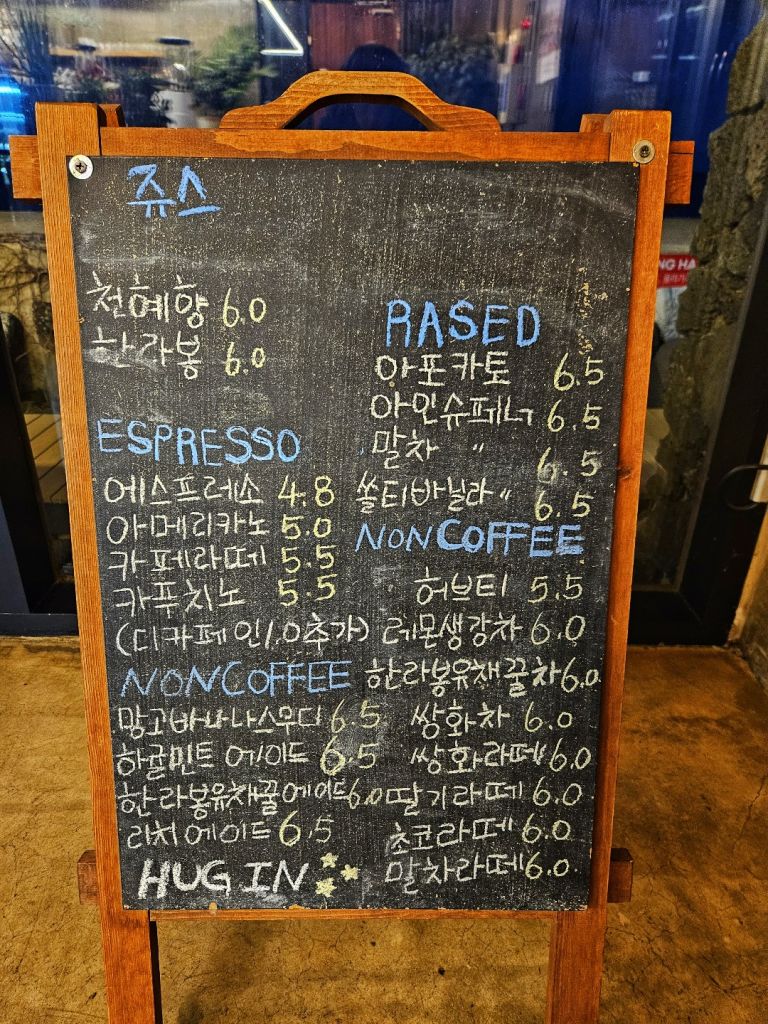 쥬스
천혜향 6.0
한라봉 6.0
ESPRESSO
에스프레소 4.8
아메리카노 5.0
카페라떼 5.5
카푸치노 5.5
(디카페인 1.0추가)
NONCOFFEE
망고바나나스무디 6.5
하귤민트 에이드 6.5
한라봉유채꿀에이드 6.0
리치에이드 6.5
HUG IN
RASED
아포카토 6.5
아인슈페너 6.5
말차 " 6.5
쏠티바닐라 " 6.5
NONCOFFEE
허브티 5.5
레몬생강차 6.0
한라봉유채꿀차 6.0
쌍화차 6.0
쌍화라떼 6.0
딸기라떼 6.0
초코라떼 6.0
말차라떼 6.0
NG HA